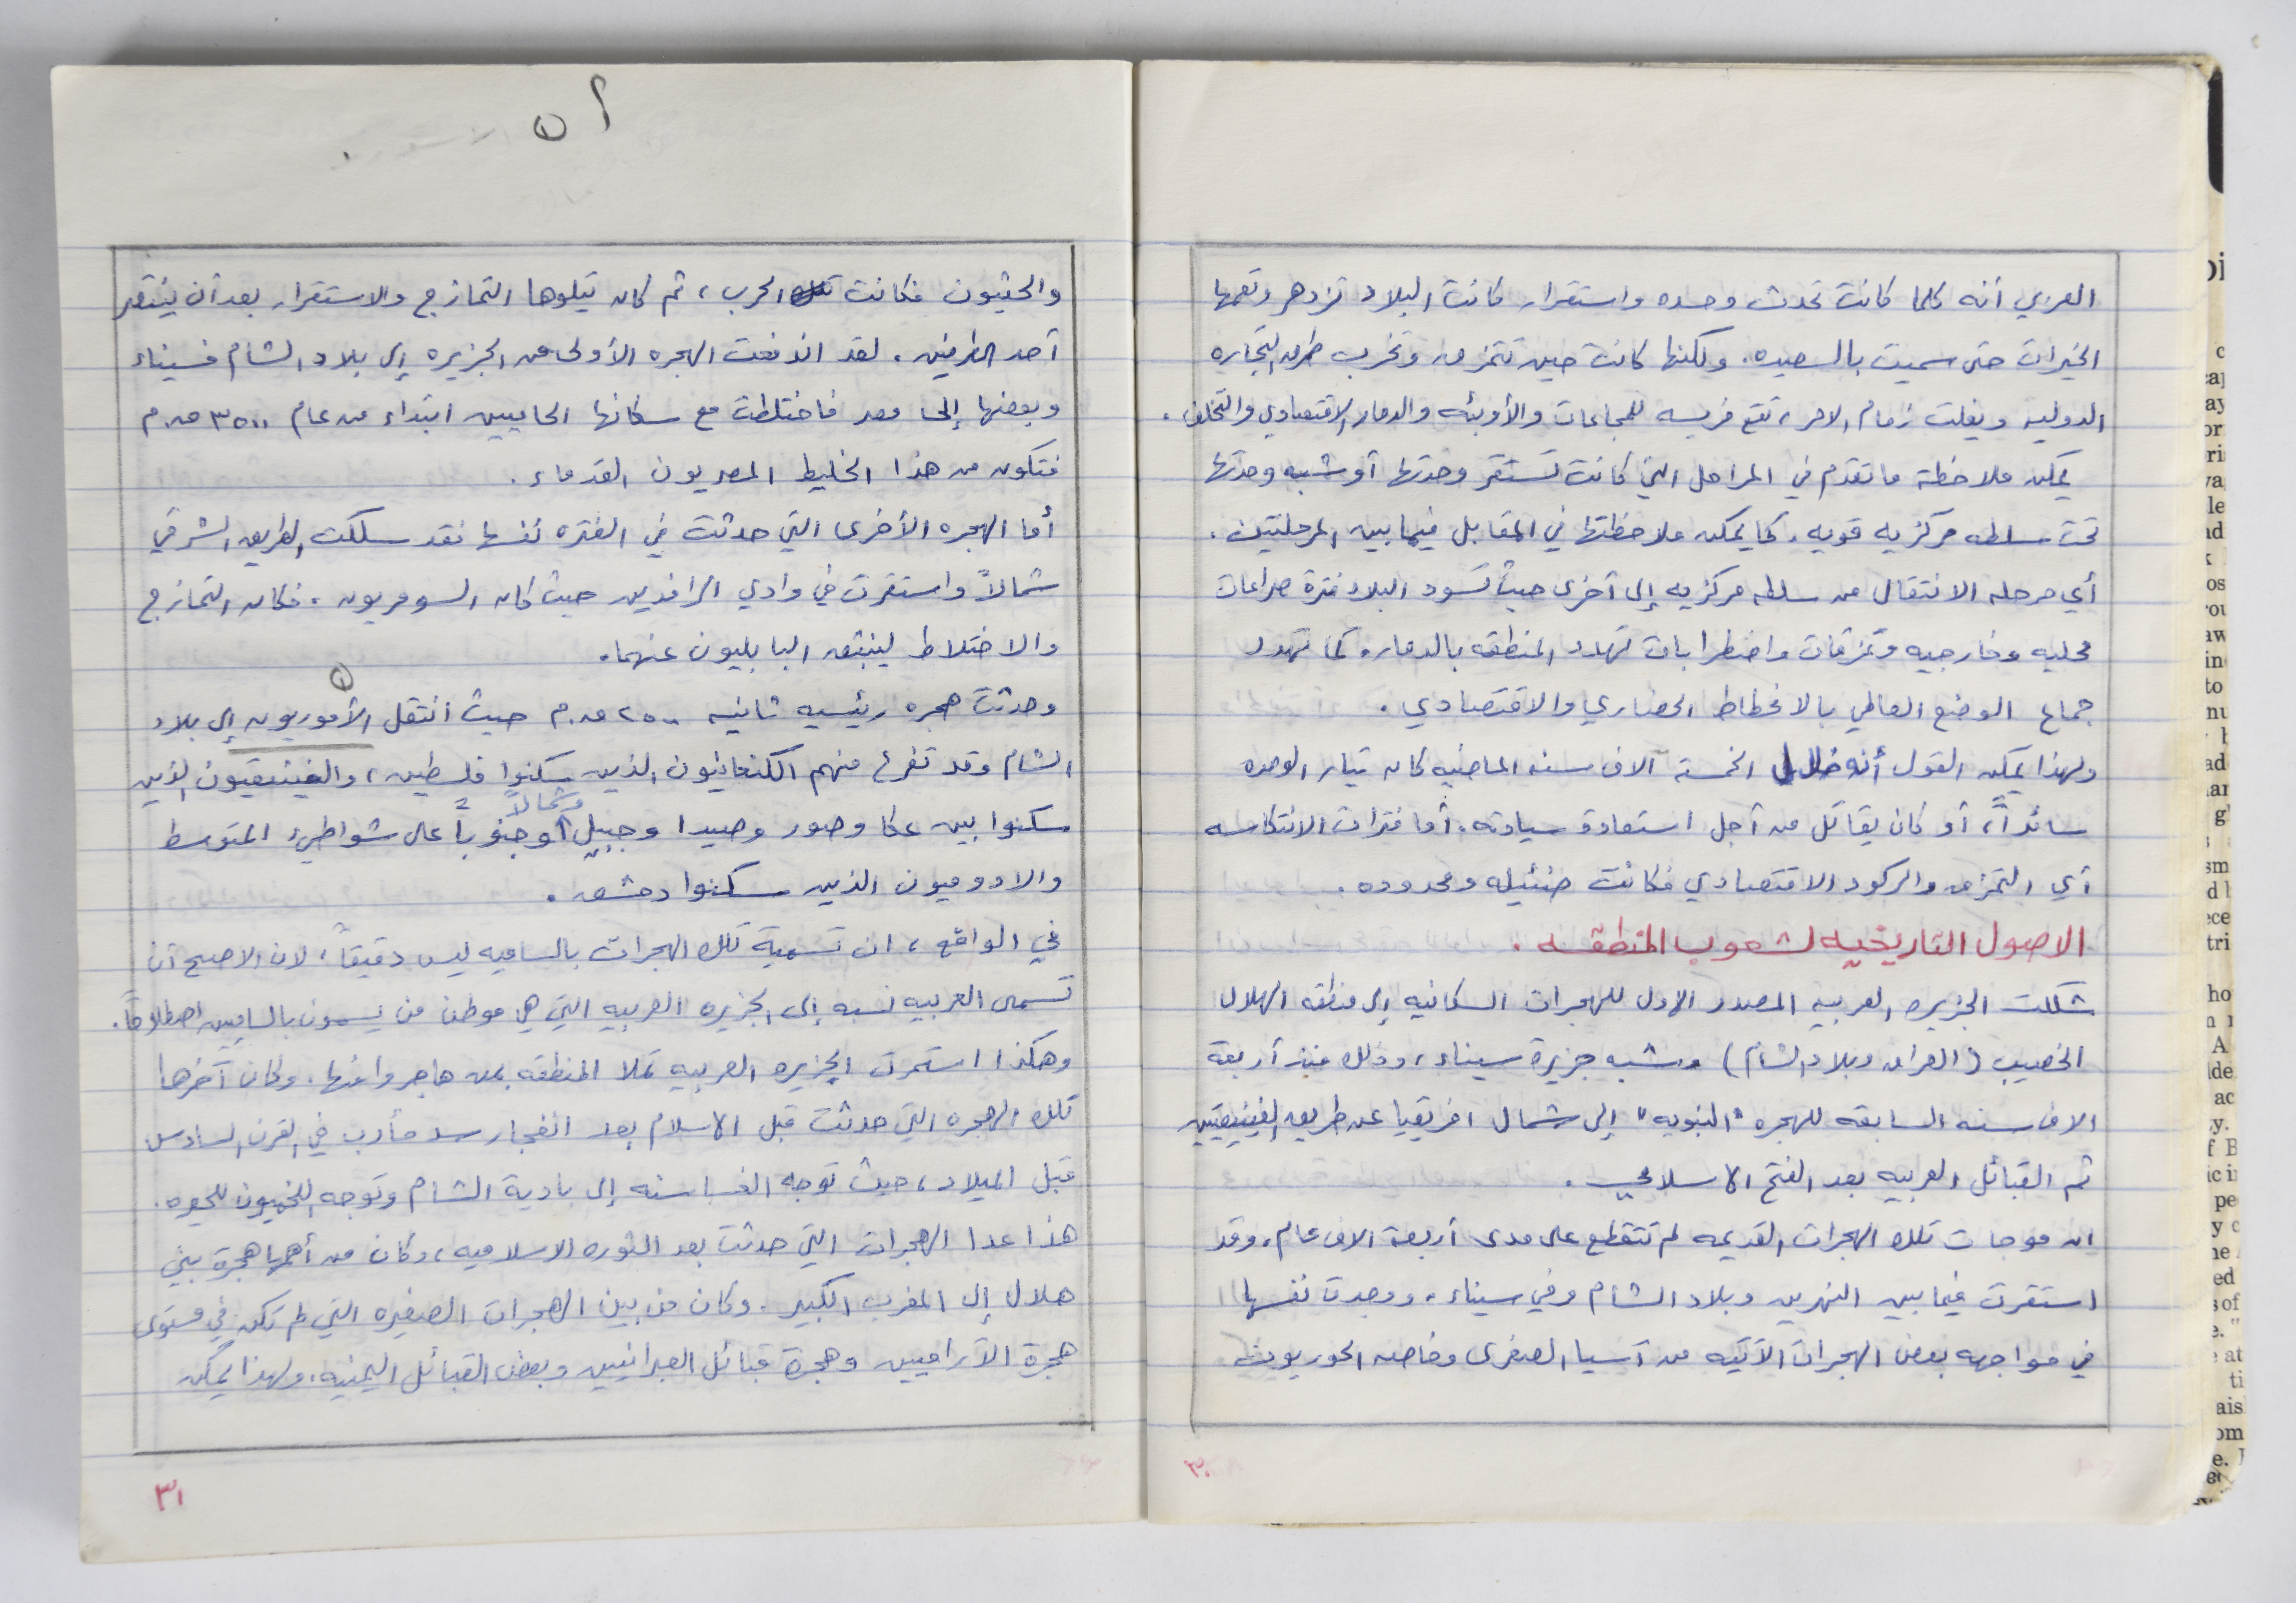 العربي أنه كلما كانت تحدث وحده واستقرار كانت البلاد تزدهر وتعمها
الخيرات حتى سميت بالسعيده. ولكنها كانت حين تتمزق وتخرب طرق التجاره
الدوليه ويفلت زمام الامر، تقع فريسه للمجاعات والأوبئه والدمار الاقتصادي والتخلف.
يمكن ملاحظة ما تقدم في المراحل التي كانت تستقر وحدتها أو شبه وحدتها
تحت سلطه مركزيه قويه. كما يمكن ملاحظتها في المقابل فيما بين المرحلتين.
أي مرحله الانتقال من سلطه مركزيه إلى أخرى حيث تسود البلاد فترة صراعات
محليه وخارجيه وتمزقات واضطرابات تهدد المنطقه بالدمار. كما تهدد
جماع الوضع العالمي بالانحطاط الحضاري والاقتصادي.
ولهذا يمكن القول أنه خلال الخمسة آلاف سنه الماضيه كان تيار الوحده
سائداً، أو كان يقاتل من أجل استعادة سيادته. أما فترات الانتكاسه
أي التمزق والركود الاقتصادي فكانت ضئيله ومحدوده.
الاصول التاريخيه لشعوب المنطقه.
شكلت الجزيره العربيه المصدر الاول للهجرات السكانيه إلى منطقه الهلال
الخصيب (العراق وبلاد الشام) وشبه جزيرة سيناء، وذلك منذ أربعة
الاف سنه السابقه للهجره "النبويه" إلى شمال افريقيا عن طريق الفينيقيين
ثم القبائل العربيه بعد الفتح الاسلامي.
ان موجات تلك الهجرات القديمه لم تتقطع على مدى أربعة الاف عام، وقد
استقرت فيما بين النهرين وبلاد الشام وفي سيناء، ووجدت نفسها
في مواجهه بعض الهجرات الآتيه من آسيا الصغرى وخاصه الحوريون
٣٠
١
والحثيون فكانت الحرب، ثم كان يتلوها التمازج والاستقرار بعد أن ينتصر
أحد الطرفين. لقد اندفعت الهجره الأولى من الجزيره إلى بلاد الشام فسيناء
وبعضها إلى مصر فاختلطت مع سكانها الحاميين ابتداء من عام ٣٥٠٠ ق.م
فتكون من هذا الخليط المصريون القدماء.
أما الهجره الأخرى التي حدثت في الفتره نفسها فقد سلكت الطريق الشرقي
شمالاً واستقرت في وادي الرافدين حيث كان السومريون. فكان التمازج
والاختلاط لينبثق البابليون عنهما.
وحدثت هجره رئيسيه ثانيه ٢٥٠٠ ق.م حيث انتقل الأموريون إلى بلاد ١
الشام وقد تفرع منهم الكنعانيون الذين سكنوا فلسطين، والفينيقيون الذين
سكنوا بين عكا وصور وصيدا وجبيل وشمالاً أو جنوباً على شواطيء المتوسط
والادوميون الذين سكنوا دمشق.
في الواقع، ان تسمية تلك الهجرات بالساميه ليس دقيقاً، لان الاصح أن
تسمى العربيه نسبه إلى الجزيره العربيه التي هي موطن من يسمون بالساميين اصطلاحاً.
وهكذا استمرت الجزيره العربيه تملا المنطقه بمن هاجروا منها. وكان آخرها
تلك الهجره التي حدثت قبل الاسلام بعد انفجار سد مأرب في القرن السادس
قبل الميلاد، حيث توجه الغساسنه إلى بادية الشام وتوجه اللخميون للحيره.
هذا عدا الهجرات التي حدثت بعد الثوره الاسلاميه، وكان من أهمها هجرة بني
هلال إلى المغرب الكبير. وكان من بين الهجرات الصغيره التي لم تكن في مستوى
هجرة الآراميين وهجرة قبائل العبرانيين وبعض القبائل اليمنيه، ولهذا يمكن
٣١